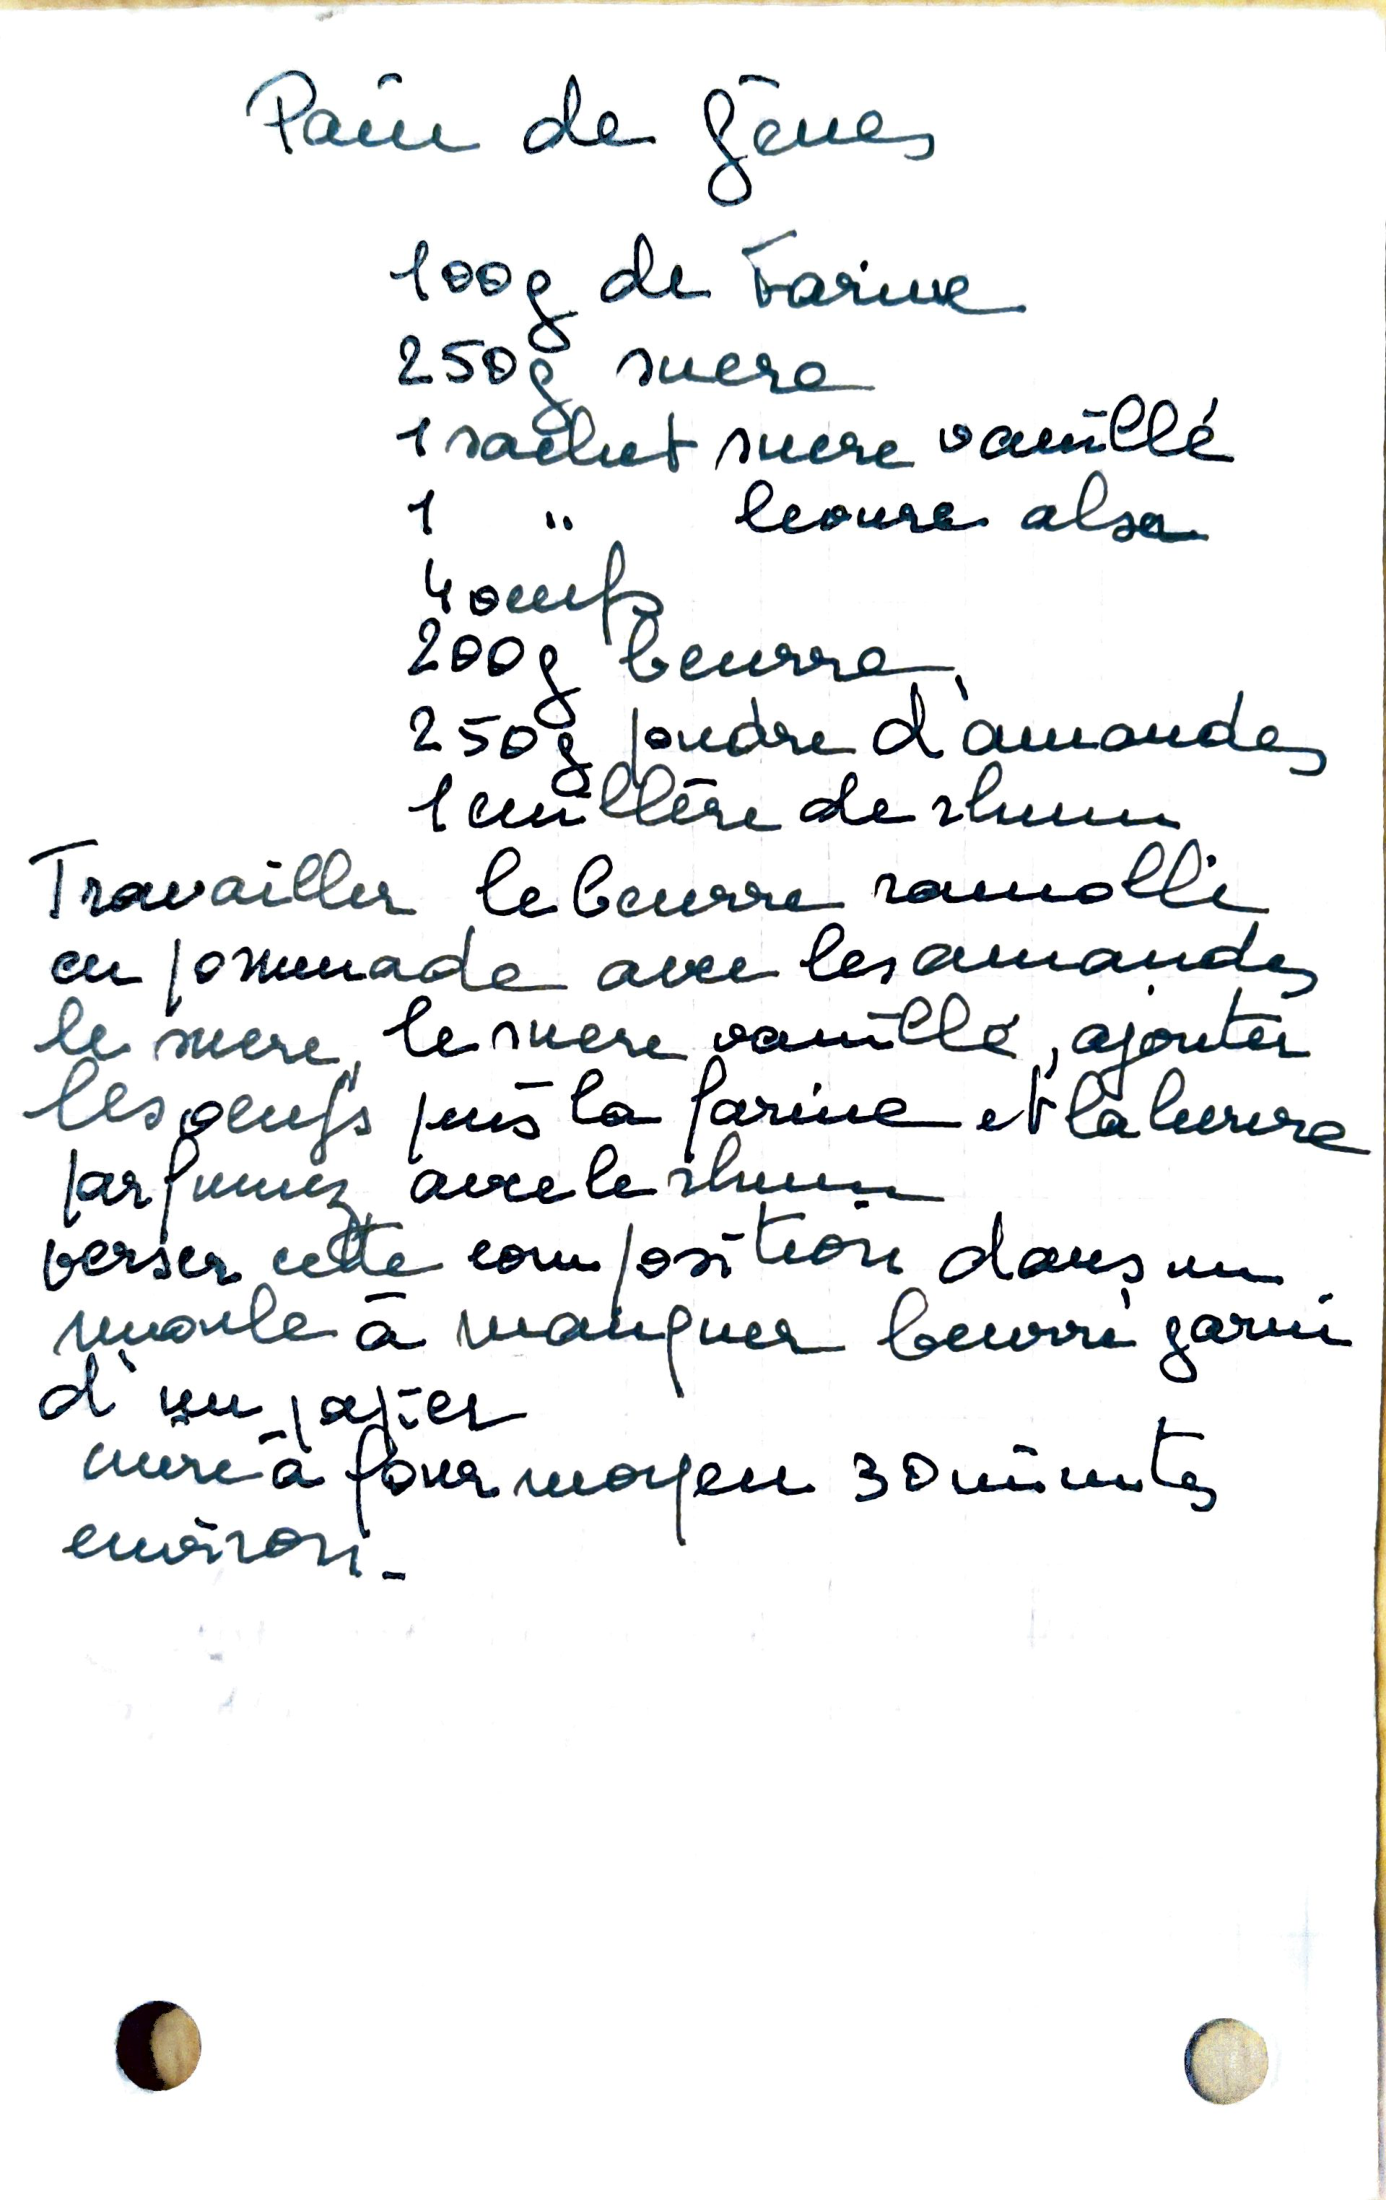 Pain de gênes
100g de Farine
250g sucre
1 sachet sucre vanillé
1 " levure alsa
4 oeufs
200g beurre
250g poudre d'amandes
1 cuillère de rhum
Travailler le beurre ramolli
en pommade avec les amandes
le sucre, le sucre vanillé, ajouter
les oeufs puis la farine et la levure
parfumez avec le rhum
verser cette composition dans un
moule à manquer beurré garni
d'un papier
cuire à four moyen 30 minutes
environ.